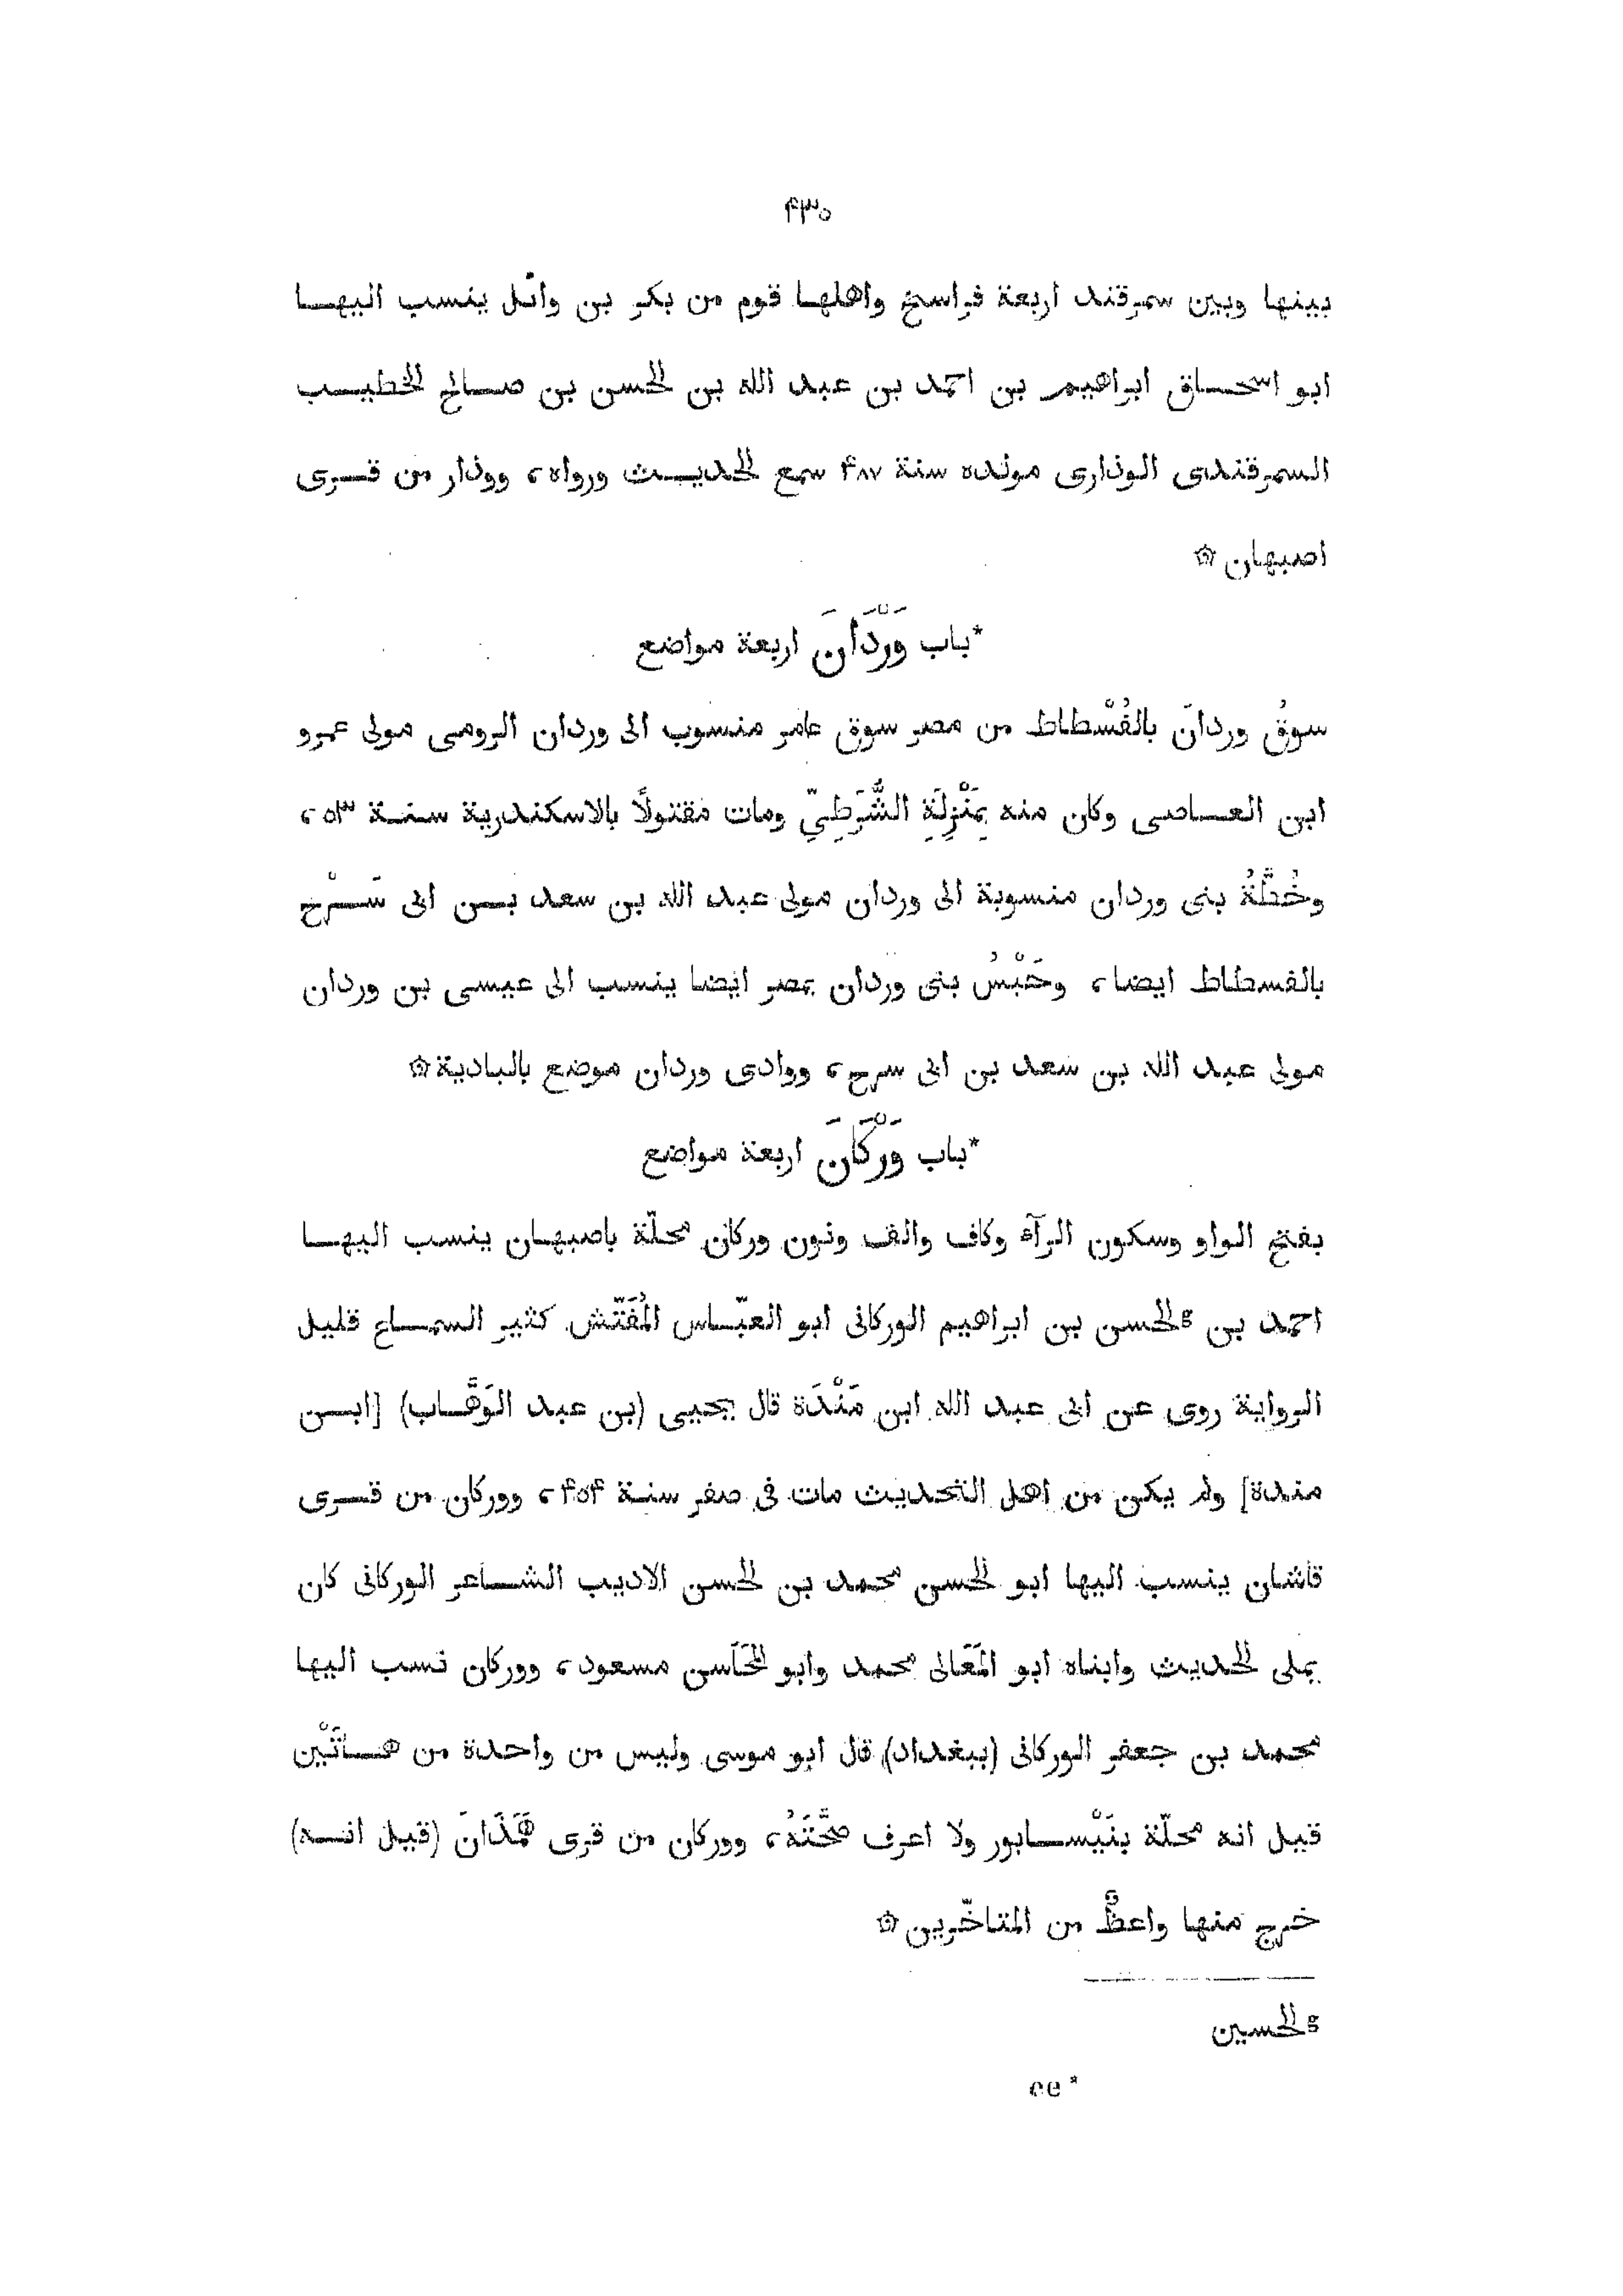 ۴۳۵
بينها وبين سمرقند اربعة فراسخ واهلها قوم من بكر بن وائل ينسب اليها
ابو اسحاق ابراهيم بن احمد بن عبد الله بن الحسن بن صالح الخطيب
السمرقندى الوذارى مولده سنة ۴۸۷ سمع الحديث ورواه، ووذار من قرى
اصبهان ۞
*باب وَرْدَانَ اربعة مواضع
سوقُ وردانَ بالفُسْطاط من مصر سوق عامر منسوب الى وردان الرومى مولى عمرو
ابن العاصى وكان منه بِمَنْزِلَةِ الشُّرَطِىِّ ومات مقتولًا بالاسكندرية سنة ۵۳،
وخُطَّةُ بنى وردان منسوبة الى وردان مولى عبد الله بن سعد بن ابى سَرْح
بالفسطاط ايضا، وحَبْسُ بنى وردان بمصر ايضا ينسب الى عيسى بن وردان
مولى عبد الله بن سعد بن ابى سرح، ووادى وردان موضع بالبادية۞
*باب وَرْكَانَ اربعة مواضع
بفتح الواو وسكون الرآء وكاف والف ونون وركان محلّة باصبهان ينسب اليها
احمد بن &الحسن بن ابراهيم الوركانى ابو العبّاس المُفَتّش كثير السماع قليل
الرواية روى عن ابى عبد الله ابن مَنْدَة قال يحيى (بن عبد الوَهَّاب) [ابن
مندة] ولم يكن من اهل التحديث مات فى صفر سنة ۴۵۴، ووركان من قرى
قاشان ينسب اليها ابو الحسن محمد بن الحسن الاديب الشاعر الوركانى كان
يملى الحديث وابناه ابو المَعَالى محمد وابو المَحَاسن مسعود، ووركان نسب اليها
محمد بن جعفر الوركانى (ببغداد) قال ابو موسى وليس من واحدة من هاتَيْن
قيل انه محلّة بنَيْسابور ولا اعرف صحَّتَهُ، ووركان من قرى هَمَذَانَ (قيل انه)
خرج منها واعظٌ من المتاخّرين۞
&الحسين